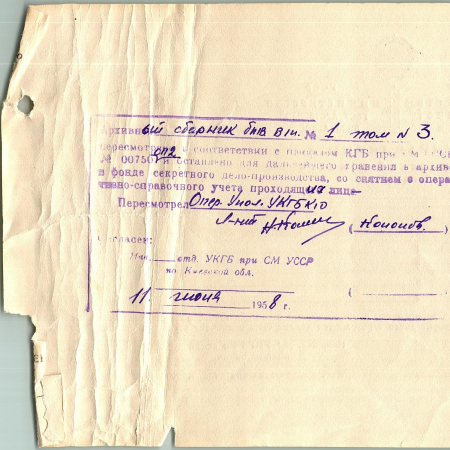 Архивный сборник б/пв в 1н. № 1 том N 3.
пересмотрен в соответствии с приказом КГБ при СМ СССР
№ 00750 и оставлено для дальнейшего хранения в архиве
в фонде секретного дело-производства, со снятием с опера-
тивно-справочного учета проходящих лиц
Пересмотрел Опер. Упол. УКГБ К/О
Л-нт
Согласен:
Нач. отд. УКГБ при СМ УССР
по Киевской обл.
11. июня 1958 г.